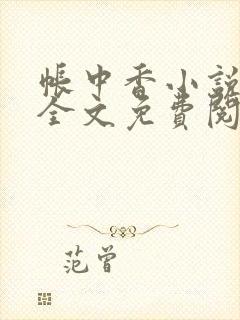 帐中香小説
全文免費閱
范曾